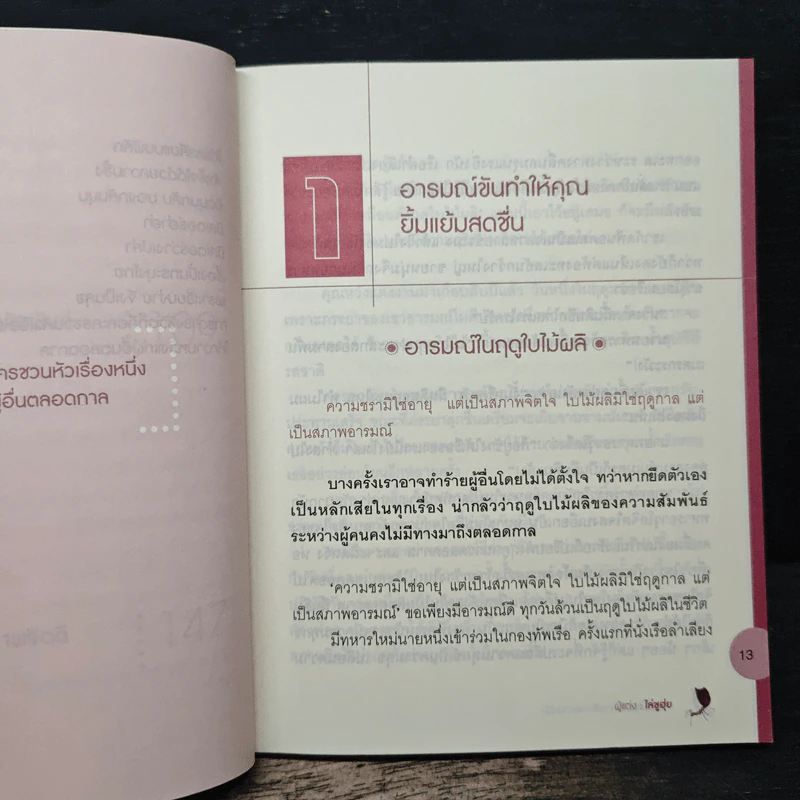 ครชวนหัวเรื่องหนึ่ง
ผู้อื่นตลอดกาล
๑
อารมณ์ขันทำให้คุณ
ยิ้มแย้มสดชื่น
อารมณ์ในฤดูใบไม้ผลิ
ความชรามิใช่อายุ แต่เป็นสภาพจิตใจ ใบไม้ผลิมิใช่ฤดูกาล แต่
เป็นสภาพอารมณ์
บางครั้งเราอาจทำร้ายผู้อื่นโดยไม่ได้ตั้งใจ ทว่าหากยึดตัวเอง
เป็นหลักเสียในทุกเรื่อง น่ากลัวว่าฤดูใบไม้ผลิของความสัมพันธ์
ระหว่างผู้คนคงไม่มีทางมาถึงตลอดกาล
'ความชรามิใช่อายุ แต่เป็นสภาพจิตใจ ใบไม้ผลิมิใช่ฤดูกาล แต่
เป็นสภาพอารมณ์' ขอเพียงมีอารมณ์ดี ทุกวันล้วนเป็นฤดูใบไม้ผลิในชีวิต
มีทหารใหม่นายหนึ่งเข้าร่วมในกองทัพเรือ ครั้งแรกที่นั่งเรือลำเลียง
13
ผู้แต่ง ไล่ซูฮุ่ย